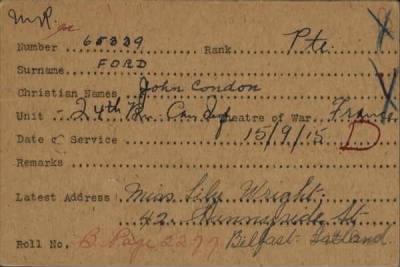 M.R.
Number 65339 Rank Pte.
Surname FORD
Christian Names John Condon
Unit - 24th Bn. Can. Inf. Theatre of War France
Date of Service 15/9/15 D
Remarks
Latest Address Miss Lily Wright,
42 Sunnyside St.
Roll No. B. Page 2277 Belfast Ireland.